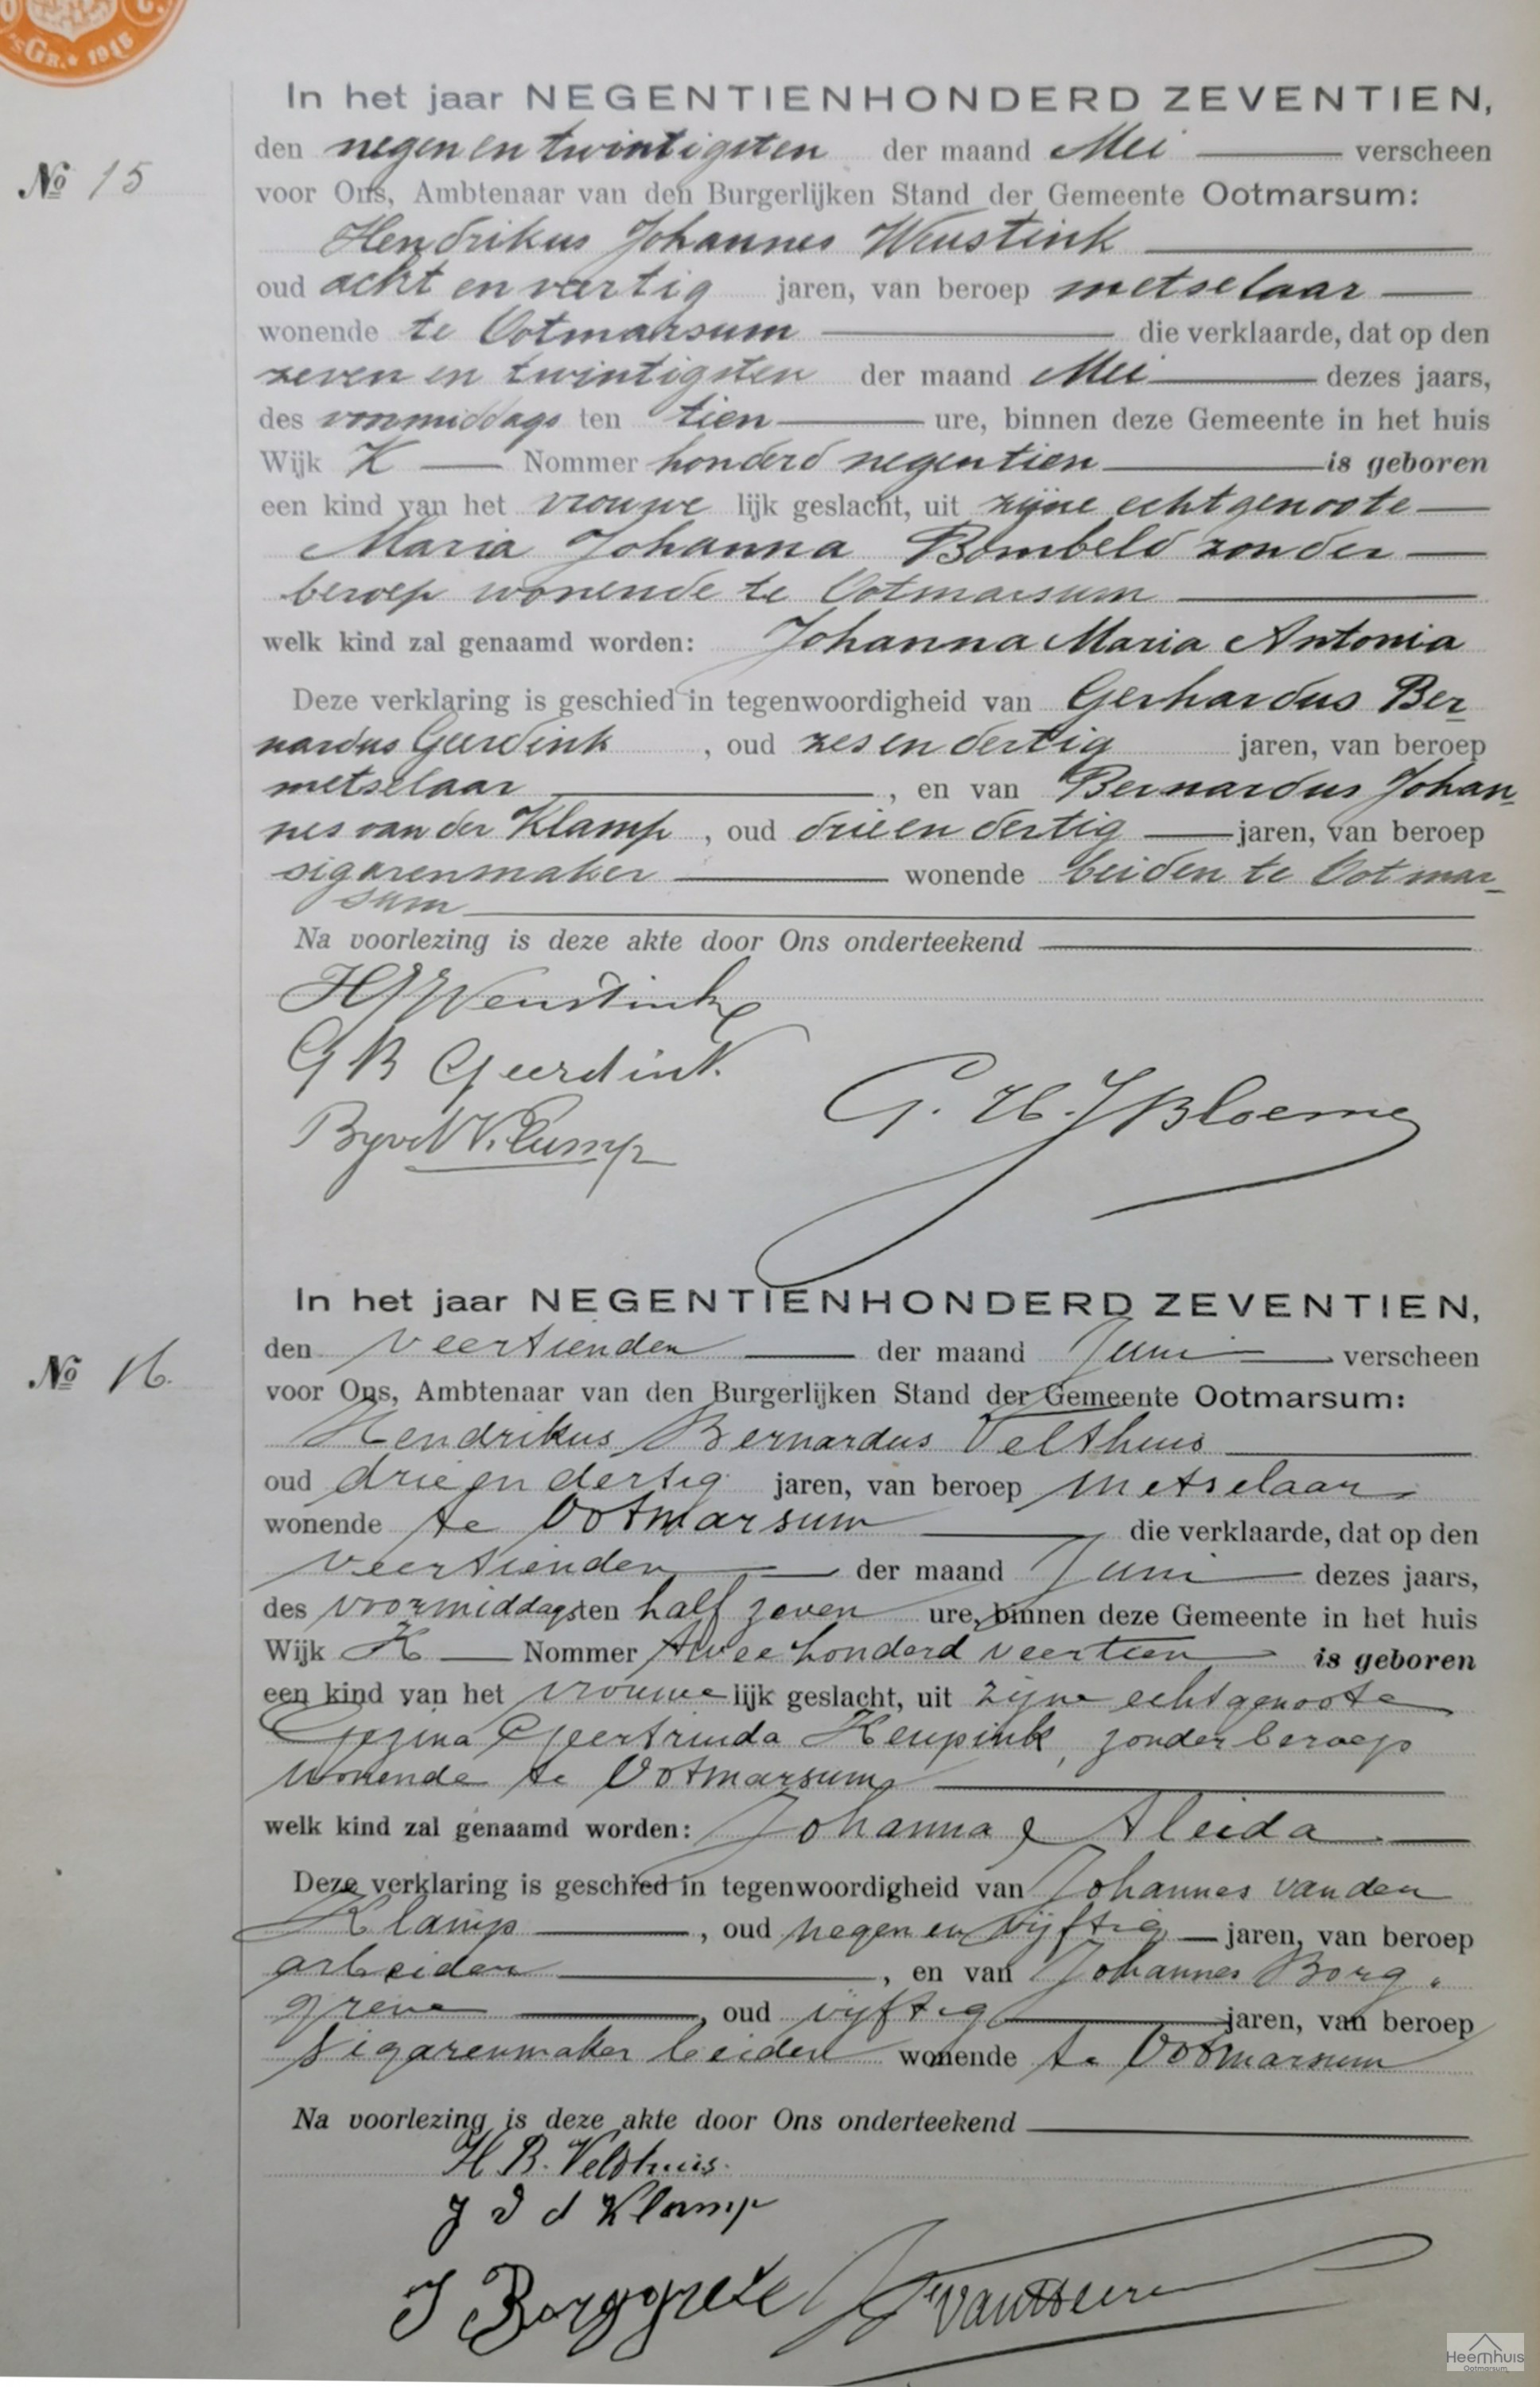 GR. 1915
In het jaar NEGENTIENHONDERD ZEVENTIEN,
den negen en twintigsten der maand Mei verscheen
No 15
voor Ons, Ambtenaar van den Burgerlijken Stand der Gemeente Ootmarsum:
Hendrikus Johannes Weustink
oud acht en veertig jaren, van beroep metselaar
wonende te Ootmarsum die verklaarde, dat op den
zeven en twintigsten der maand Mei dezes jaars,
des voormiddags ten tien ure, binnen deze Gemeente in het huis
Wijk K Nommer honderd negentien is geboren
een kind van het vrouwe lijk geslacht, uit zijne echtgenoote
Maria Johanna Bombeld zonder
beroep wonende te Ootmarsum
welk kind zal genaamd worden: Johanna Maria Antonia
Deze verklaring is geschied in tegenwoordigheid van Gerhardus Ber-
nardus Geerdink, oud zes en dertig jaren, van beroep
metselaar, en van Bernardus Johan-
nes van der Klamp, oud drie en dertig jaren, van beroep
sigarenmaker wonende beiden te Ootmar-
sum
Na voorlezing is deze akte door Ons onderteekend
HJWeustink
G B Geerdink
BJvdKlamp
G. H. J Bloemen
In het jaar NEGENTIENHONDERD ZEVENTIEN,
den veertienden der maand Juni verscheen
No 16.
voor Ons, Ambtenaar van den Burgerlijken Stand der Gemeente Ootmarsum:
Hendrikus Bernardus Velthuis
oud drie en dertig jaren, van beroep metselaar
wonende te Ootmarsum die verklaarde, dat op den
veertienden der maand Juni dezes jaars,
des voormiddags ten half zeven ure, binnen deze Gemeente in het huis
Wijk K Nommer twee honderd veertien is geboren
een kind van het vrouwe lijk geslacht, uit zijne echtgenoote
Gezina Geertruida Keupink, zonder beroep
wonende te Ootmarsum
welk kind zal genaamd worden: Johanna Aleida
Deze verklaring is geschied in tegenwoordigheid van Johannes van der
Klamp, oud negen en vijftig jaren, van beroep
arbeider, en van Johannes Borg-
greve, oud vijftig jaren, van beroep
sigarenmaker beiden wonende te Ootmarsum
Na voorlezing is deze akte door Ons onderteekend
H B. Veldhuis.
J v d Klamp
J Borggreve
Heemhuis
Ootmarsum